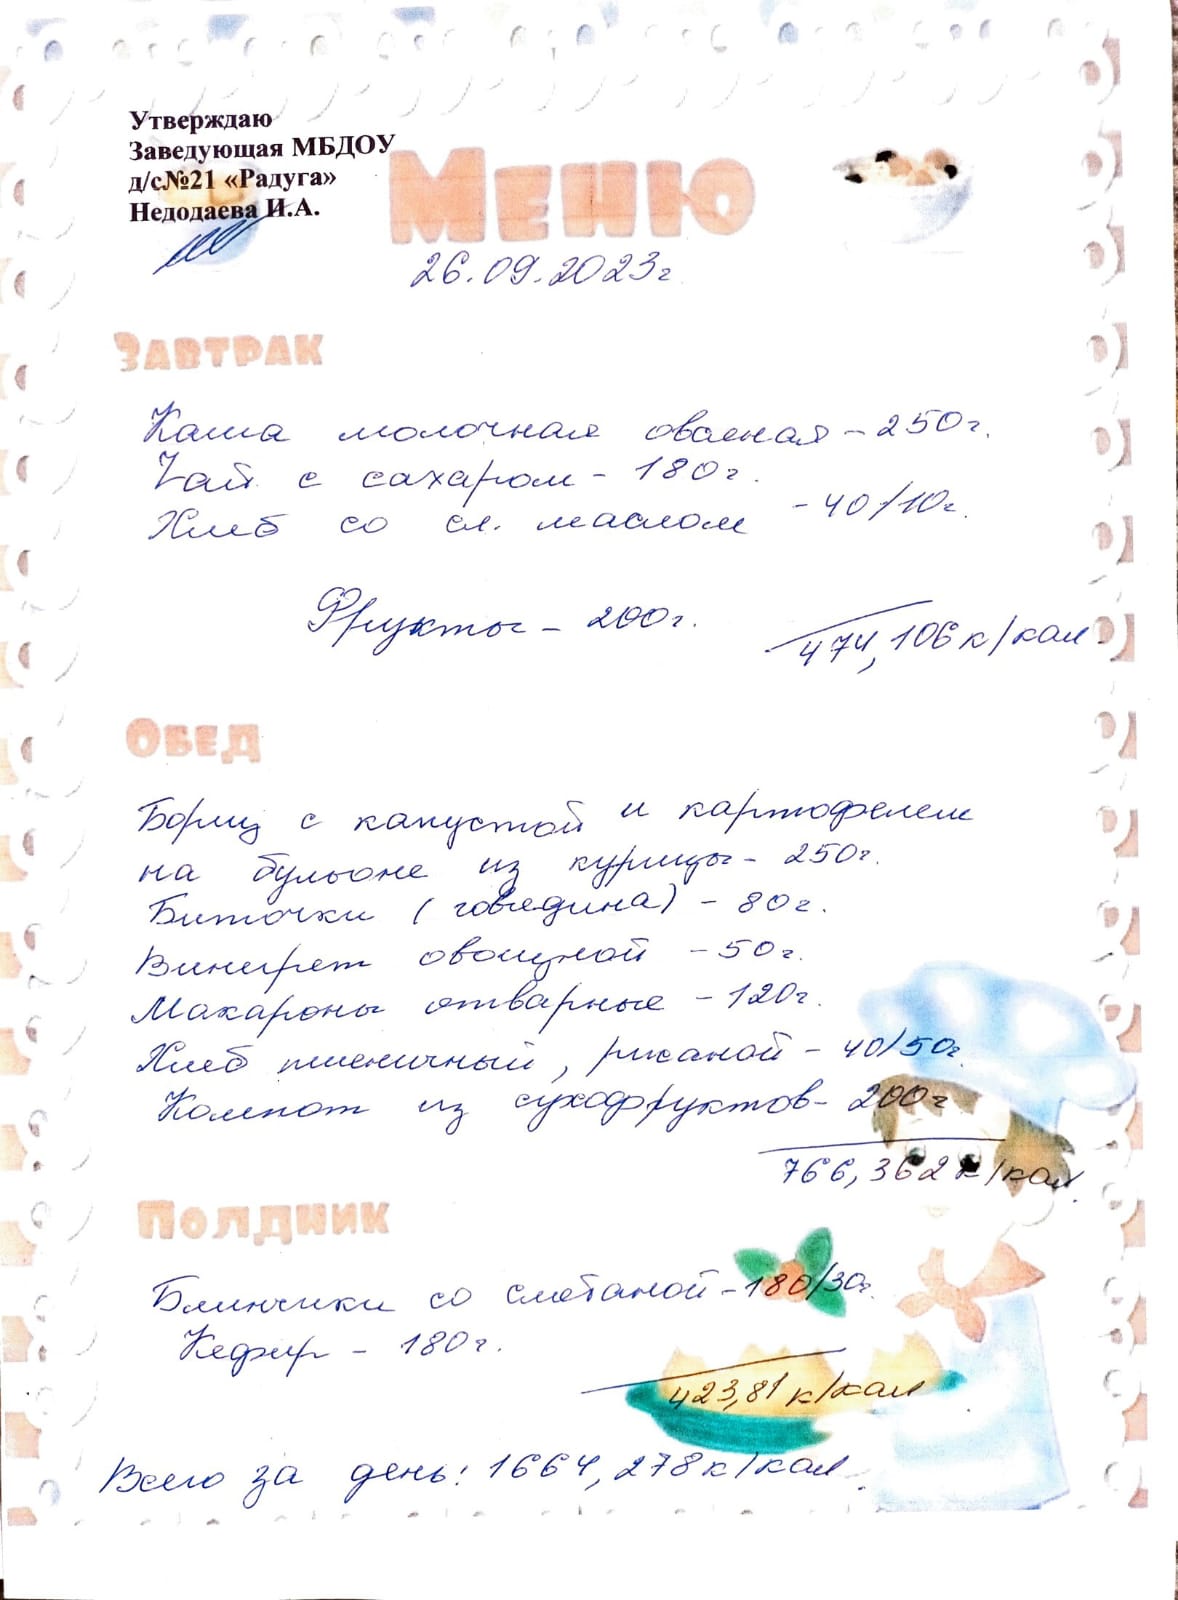 Утверждаю
Заведующая МБДОУ
д/с№21 «Радуга»
Недодаева И.А.
Меню
26.09.2023г
Завтрак
Каша молочная овсяная - 250г.
Чай с сахаром - 180г.
Хлеб со сл. маслом - 40/10г.
Фрукты - 200г.
474,106 к/кал
Обед
Борщ с капустой и картофелем
на бульоне из курицы - 250г.
Биточки (говядина) - 80г.
Винегрет овощной - 50г.
Макароны отварные - 120г.
Хлеб пшеничный, ржаной - 40/50г.
Компот из сухофруктов - 200г
766,362 к/кал.
Полдник
Блинчики со сметаной - 180/30г.
Кефир - 180г.
423,81 к/кал
Всего за день: 1664,278 к/кал.